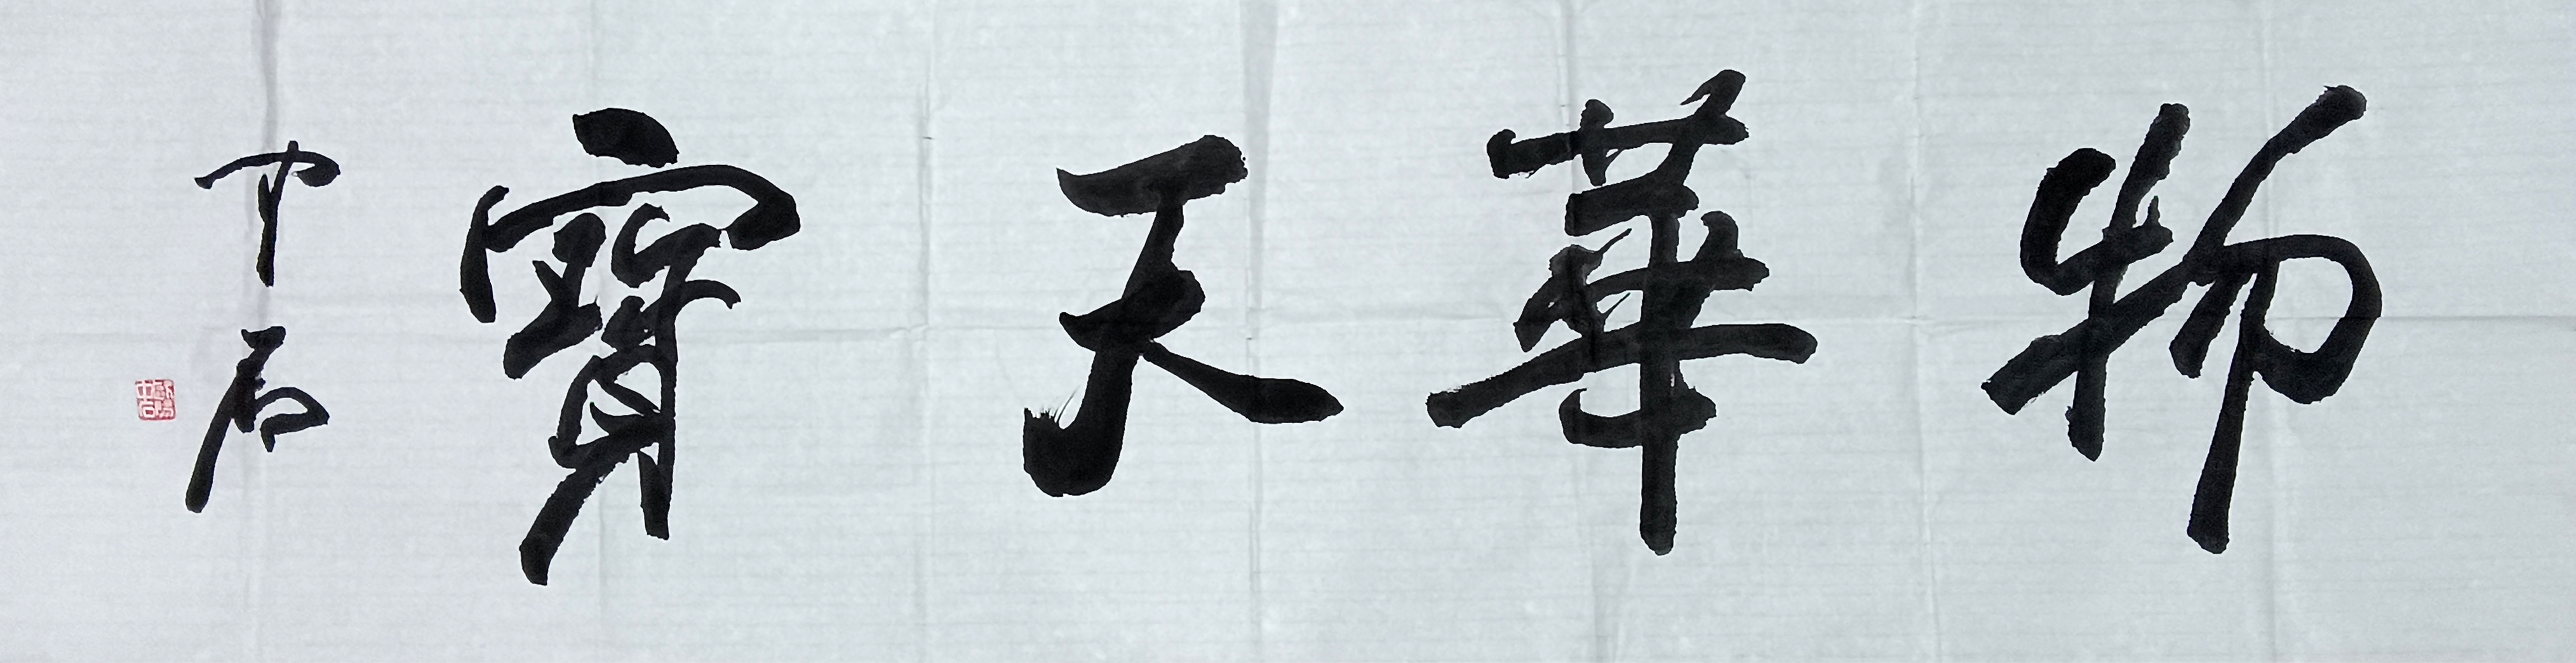 物華天寶
中石